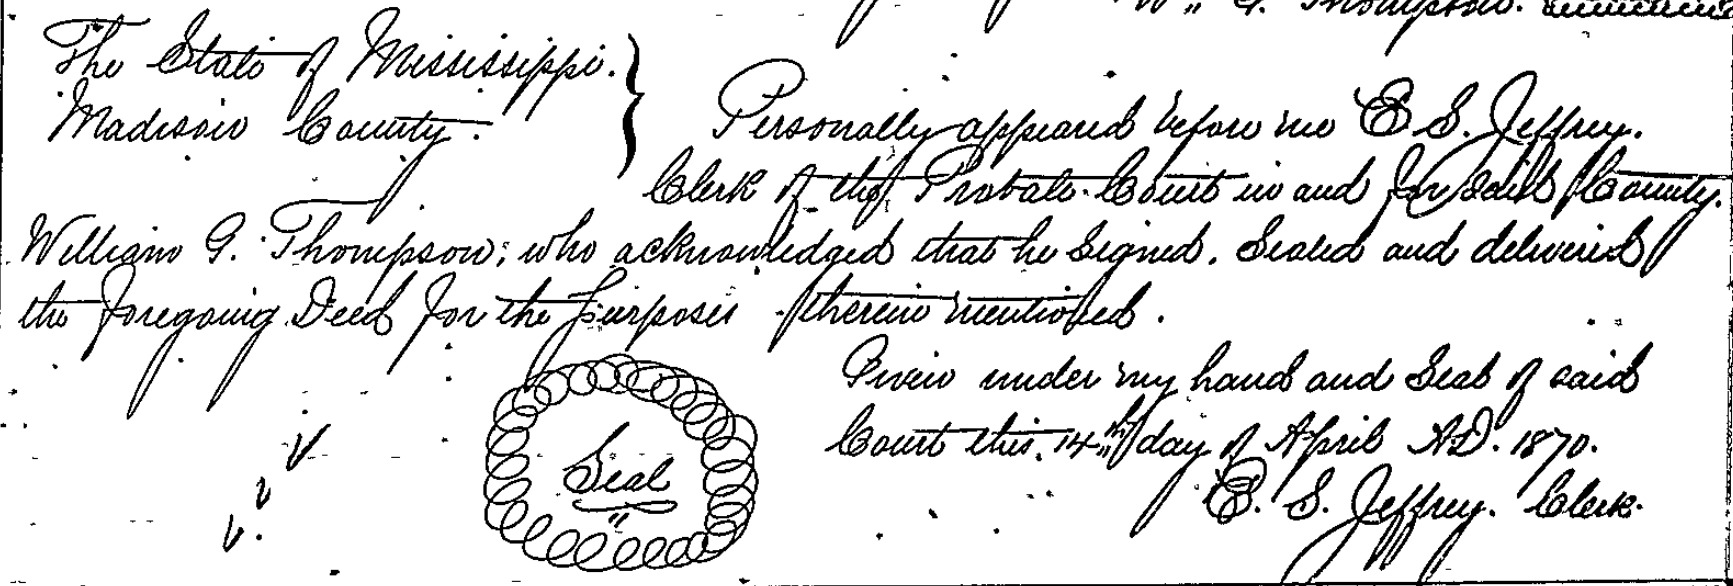 W" G. Thompson.
The State of Mississippi. }
Madison County. } Personally appeared before me E. S. Jeffrey.
Clerk of the Probate Court in and for said County.
William G. Thompson; who acknowledged that he signed. Sealed and delivered
the foregoing Deed for the purposes therein mentioned.
Given under my hand and Seal of said
Court this. 14"th day of April A.D. 1870.
Seal
"
E. S. Jeffrey. Clerk.